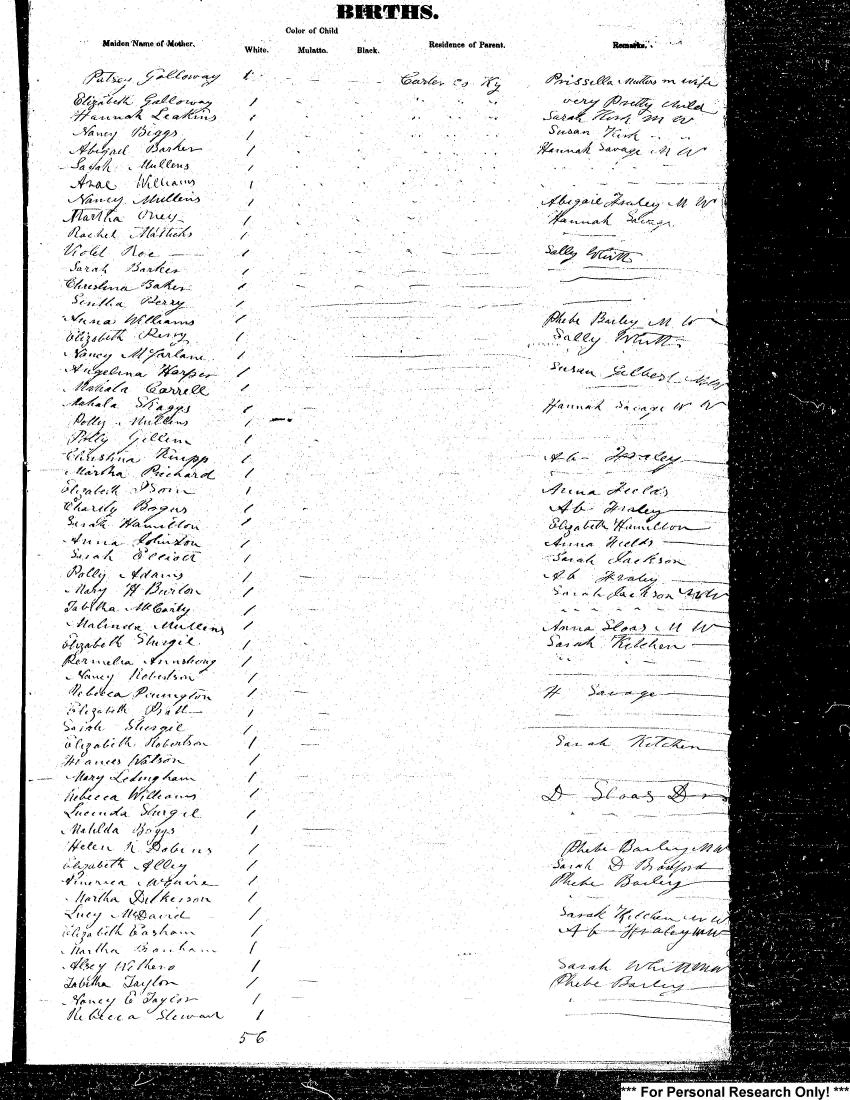 BIRTHS.
Color of Child
Maiden Name of Mother. White. Mulatto. Black. Residence of Parent. Remarks.
Patsy Galloway 1 Carter Co Ky Prissilla Mullens m wife
Elizabeth Galloway 1 " " " very Pretty child
Hannah Leakins 1 " " " Sarah Kirk M W
Nancy Biggs 1 Susan Kirk " "
Abigail Barker 1 Hannah Savage M W
Sarah Mullens 1
Williams 1
Nancy Mullens 1 Abigail Fraley M W
Martha Oney 1 Hannah Savage
Rachel 1
Violet Roe 1 Sally Whitt
Sarah Barker 1
Christina Baker 1
Sintha Perry 1
Anna Williams 1 Phebe Barley M W
Elizabeth Perry 1 Sally Whitt
Nancy McFarlane 1
Angelina Harper 1 Susan Gilbert M W
Mahala Carrell 1
Mahala Skaggs 1 Hannah Savage W W
Polly Mullens 1
Polly Gillem 1
Christina 1 Ab Fraley
Martha Prichard 1
Elizabeth Isom 1 Anna Fields
Charity Boggs 1 Ab Fraley
Sarah Hamilton 1 Elizabeth Hamilton
Anna Johnson 1 Anna Fields
Sarah Elliott 1 Sarah Jackson
Polly Adams 1 Ab Fraley
Mary H Burton 1 Sarah Jackson M W
Tabitha McCarty 1 " " " "
Malinda Mullens 1 Anna Sloas M W
Elizabeth Sturgil 1 Sarah Kitchen
Permelia Armstrong 1 " "
Nancy Robertson 1
Rebecca Penington 1 H Savage
Elizabeth Pratt 1
Sarah Sturgil 1
Elizabeth Robertson 1 Sarah Kitchen
Frances Watson 1
Mary Ledingham 1
Rebecca Williams 1 D Sloas
Lucinda Sturgil 1
Matilda Boggs 1
Helen R Dobins 1 Phebe Barley M W
Elizabeth Alley 1 Sarah D Bradford
America McGuire 1 Phebe Barley
Martha Dickerson 1
Lucy McDavid 1 Sarah Kitchen M W
Elizabeth Easham 1 Ab Fraley M W
Martha Branham 1
Alsey 1 Sarah Whitt M W
Tabitha Taylor 1 Phebe Barley
Nancy E Taylor 1
Rebecca Stewart 1
56
*** For Personal Research Only! ***